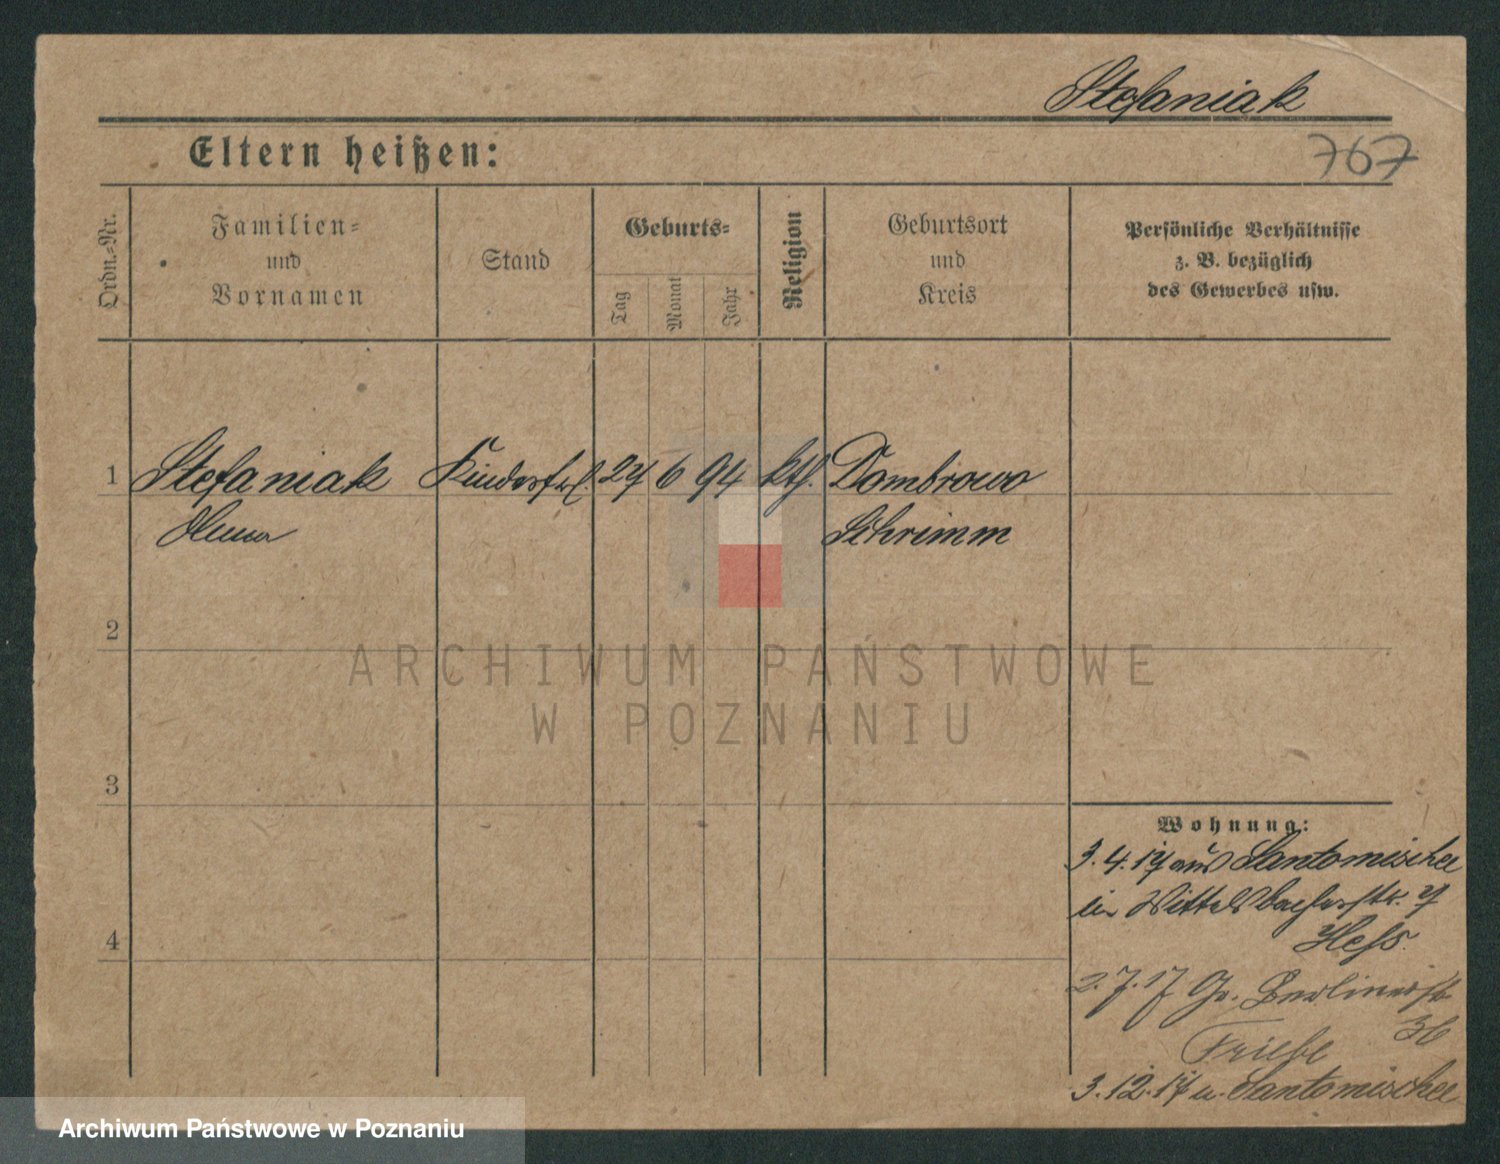 Stefaniak
767
Eltern heißen:
Ordn.-Nr.
Familien- und Vornamen
Stand
Geburts-
Tag
Monat
Jahr
Religion
Geburtsort und Kreis
Persönliche Verhältnisse
z. B. bezüglich
des Gewerbes usw.
1 Stefaniak 27 6 94 kth. Dombrowo
Schrimm
2
3
4
Wohnung:
3.4.17 aus Santomischel
in Wittelsbacherstr. 7
Hess.
2.7.17 Gr. Berlinerstr.
36
Friebe
3.12.17 n. Santomischel
ARCHIWUM PAŃSTWOWE
W POZNANIU
Archiwum Państwowe w Poznaniu